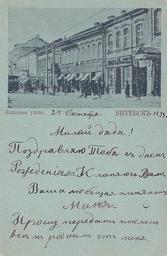 Замковая улица.
ВИТЕБСКЪ
24 Октября
Милый дядя!
Поздравляю Тебя съ днемъ
Рожденія. Кланяюсь Вамъ
Ваша любящая племянница
Маня.
Прошу передать поклонъ
всѣмъ роднымъ отъ меня